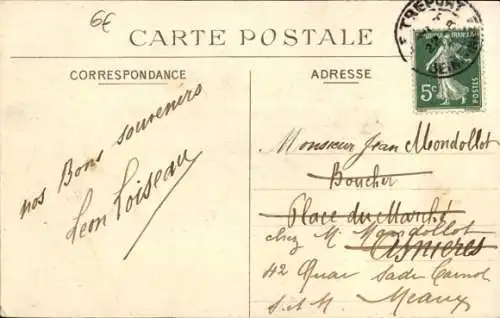 6€
CARTE POSTALE
CORRESPONDANCE
ADRESSE
TREPORT
5c
POSTES
nos Bons souvenirs
Leon Loiseau
Monsieur Jean Mondollot
Boucher
Place du Marché
chez M. Mondollot
Asnieres
42 Quai Sadi Carnot
S. et M. Meaux